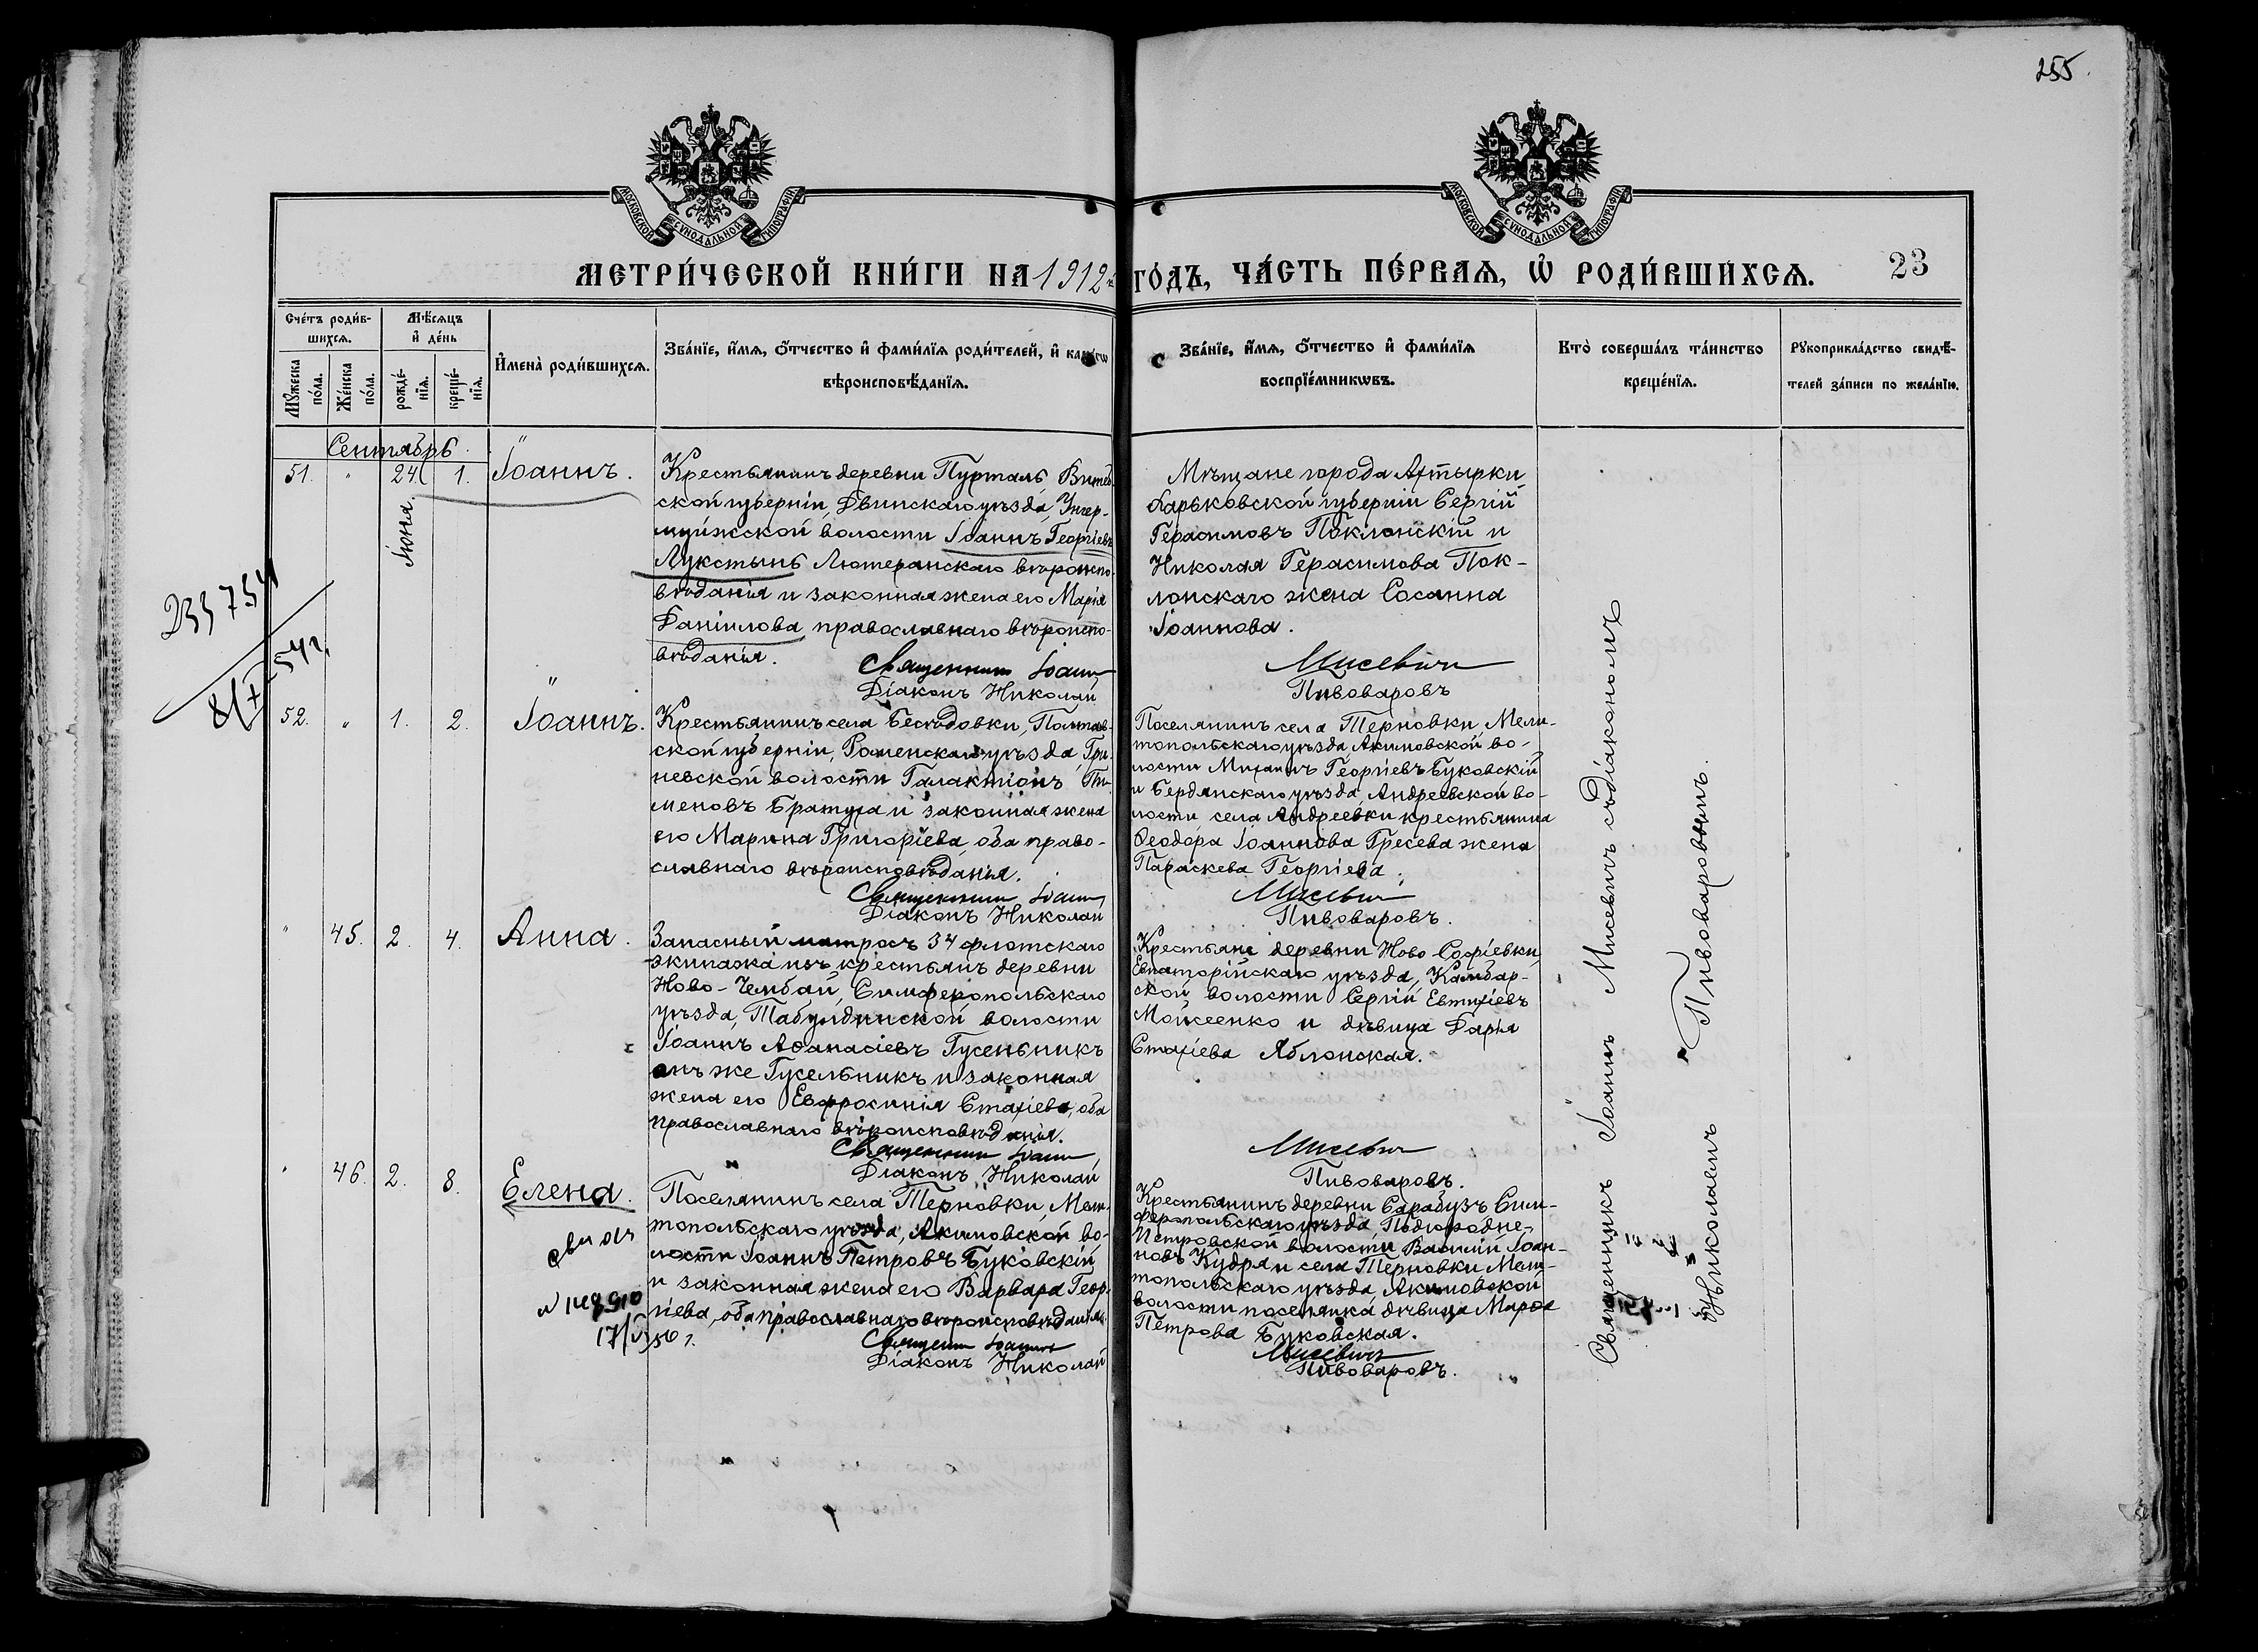 255.
МОСКОВСКОЙ СУНОДАЛЬНОЙ ТИПОГРАФІИ
МОСКОВСКОЙ СУНОДАЛЬНОЙ ТИПОГРАФІИ
МЕТРИ́ЧЕСКОЙ КНИ́ГИ НА 1912 ГО́ДЪ, ЧА́СТЬ ПЕ́РВАЯ, Ѡ҆ РОДИ́ВШИХСЯ. 23
Сче́тъ роди́в-
шихся.
Мꙋ́жеска по́ла.
Же́нска по́ла.
Мѣ́сяцъ
и҆ де́нь
рожде́-
нїя.
креще́-
нїя.
И҆мена̀ роди́вшихся.
Зва́нїе, и҆́мя, ѻ҆́тчество и҆ фами́лїя роди́телей, и҆ како́гѡ
вѣроисповѣ́данїя.
Зва́нїе, и҆́мя, ѻ҆́тчество и҆ фами́лїя
воспрїе́мникѡвъ.
Кто̀ соверша́лъ та́инство
креще́нїя.
Рꙋкоприкла́дство свидѣ́-
телей за́писи по жела́нїю.
Сентябрь.
51. " 24 Іюня. 1. Іоаннъ.
Крестьянинъ деревни Пурталь, Витеб-
ской губерніи, Двинскаго уѣзда, Унгер-
муйжской волости Іоаннъ Георгіевъ
Лукстынь Лютеранскаго вѣроиспо-
вѣданія и законная жена его Марія
Даніилова православнаго вѣроиспо-
вѣданія.
Священникъ Іоаннъ
Діаконъ Николай
Мѣщане города Ахтырки,
Харьковской губерніи Сергій
Герасимовъ Поклонскій и
Николая Герасимова Пок-
лонскаго жена Сосанна
Іоаннова.
Мисевичъ
Пивоваровъ
52. " 1. 2. Іоаннъ.
Крестьянинъ села Бесѣдовки, Полтав-
ской губерніи, Роменскаго уѣзда, Гри-
невской волости Галактіонъ
меновъ Братуга и законная жена
его Марина Григоріева, оба право-
славнаго вѣроисповѣданія.
Священникъ Іоаннъ
Діаконъ Николай
Поселянинъ села Терновки, Мели-
топольскаго уѣзда, Акимовской во-
лости Михаилъ Георгіевъ Буковскій
и Бердянскаго уѣзда, Андреевской во-
лости села Андреевки крестьянина
Ѳеодора Іоаннова Гресева жена
Параскева Георгіева.
Мисевичъ
Пивоваровъ.
" 45. 2. 4. Анна.
Запасный матросъ 34 флотскаго
экипажа изъ крестьянъ деревни
Ново-Чембай, Симферопольскаго
уѣзда, Табулдинской волости
Іоаннъ Аѳанасіевъ Гусеньникъ
онъ же Гусельникъ и законная
жена его Евфросинія Стахіева, оба
православнаго вѣроисповѣданія.
Священникъ Іоаннъ
Діаконъ Николай
Крестьяне деревни Ново Софіевки,
Евпаторійскаго уѣзда, Камбар-
ской волости Сергій Евтихіевъ
Мойсеенко и дѣвица Дарія
Стахіева Яблонская.
Мисевичъ
Пивоваровъ.
" 46. 2. 8. Елена.
Поселянинъ села Терновки, Мели-
топольскаго уѣзда, Акимовской во-
лости Іоаннъ Петровъ Буковскій
и законная жена его Варвара Геор-
гіева, оба православнаго вѣроисповѣданія.
Священникъ Іоаннъ
Діаконъ Николай
Крестьянинъ деревни Сарабузъ Сим-
феропольскаго уѣзда, Подгородне-
Петровской волости Василій Іоан-
новъ Кудря и села Терновки Мели-
топольскаго уѣзда, Акимовской
волости поселянка дѣвица Марѳа
Петрова Буковская.
Мисевичъ
Пивоваровъ.
Священникъ Іоаннъ Мисевичъ съ діакономъ
Николаемъ Пивоваровымъ.